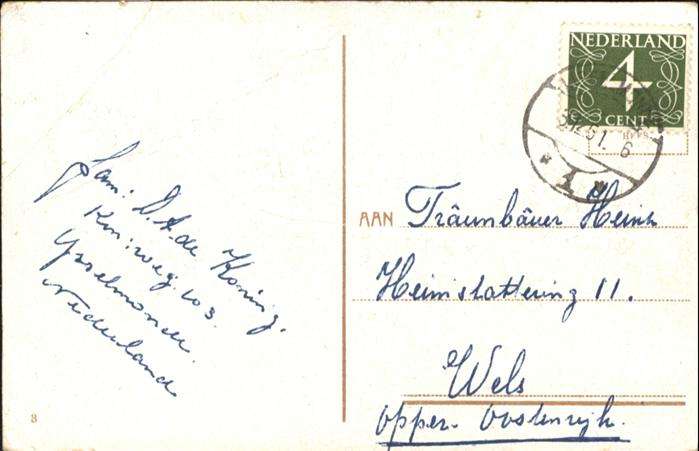 NEDERLAND
4
CENT
6
1
fam: D. A. de Koning.
Kon: weg. 103.
Ysselmonde.
Nederland
AAN Träunbäuer Heinz
Heimstattering 11.
Wels
Opper. Oostenrijk.
3